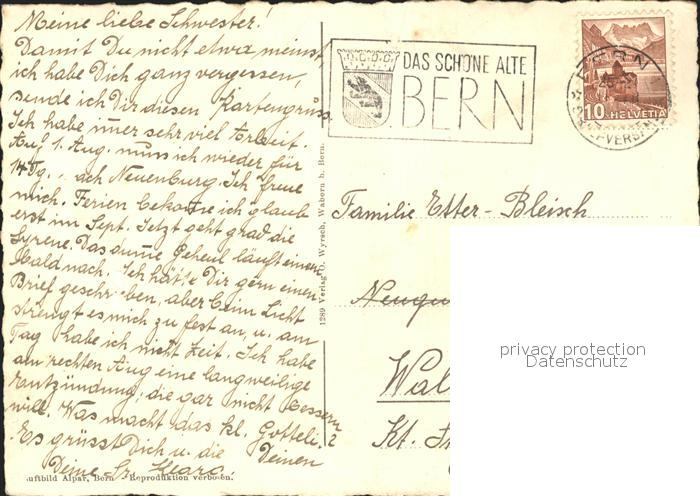 Meine liebe Schwester!
Damit Du nicht etwa meinst
ich habe Dich ganz vergessen,
sende ich Dir diesen Kartengruss.
Ich habe imer sehr viel Arbeit.
Auf 1. Aug. muss ich wieder für
14 Tg. ach Neuenburg. Ich freue
mich. Ferien bekome ich glaub
erst im Sept. Jetzt geht grad die
Syrene. Das dume Geheul läuft einem
bald nach. Ich hätte Dir gern einen
Brief geschr ben, aber beim Licht
strengt es mich zu fest an, u. am
Tag habe ich nicht Zeit. Ich habe
am rechten Aug eine langweilige
entzündung, die gar nicht bessern
will. Was macht das kl. Gotteli?
Es grüsst Dich u. die Deinen
Deine Sr. Klara.
uftbild Alpar, Bern Reproduktion verboten.
1289 Verlag O. Wyrsch, Wabern b. Bern.
DAS SCHÖNE ALTE
BERN
BERN
10 HELVETIA
Familie Etter-Bleisch
Neugu
Wal
Kt. Fr
privacy protection
Datenschutz